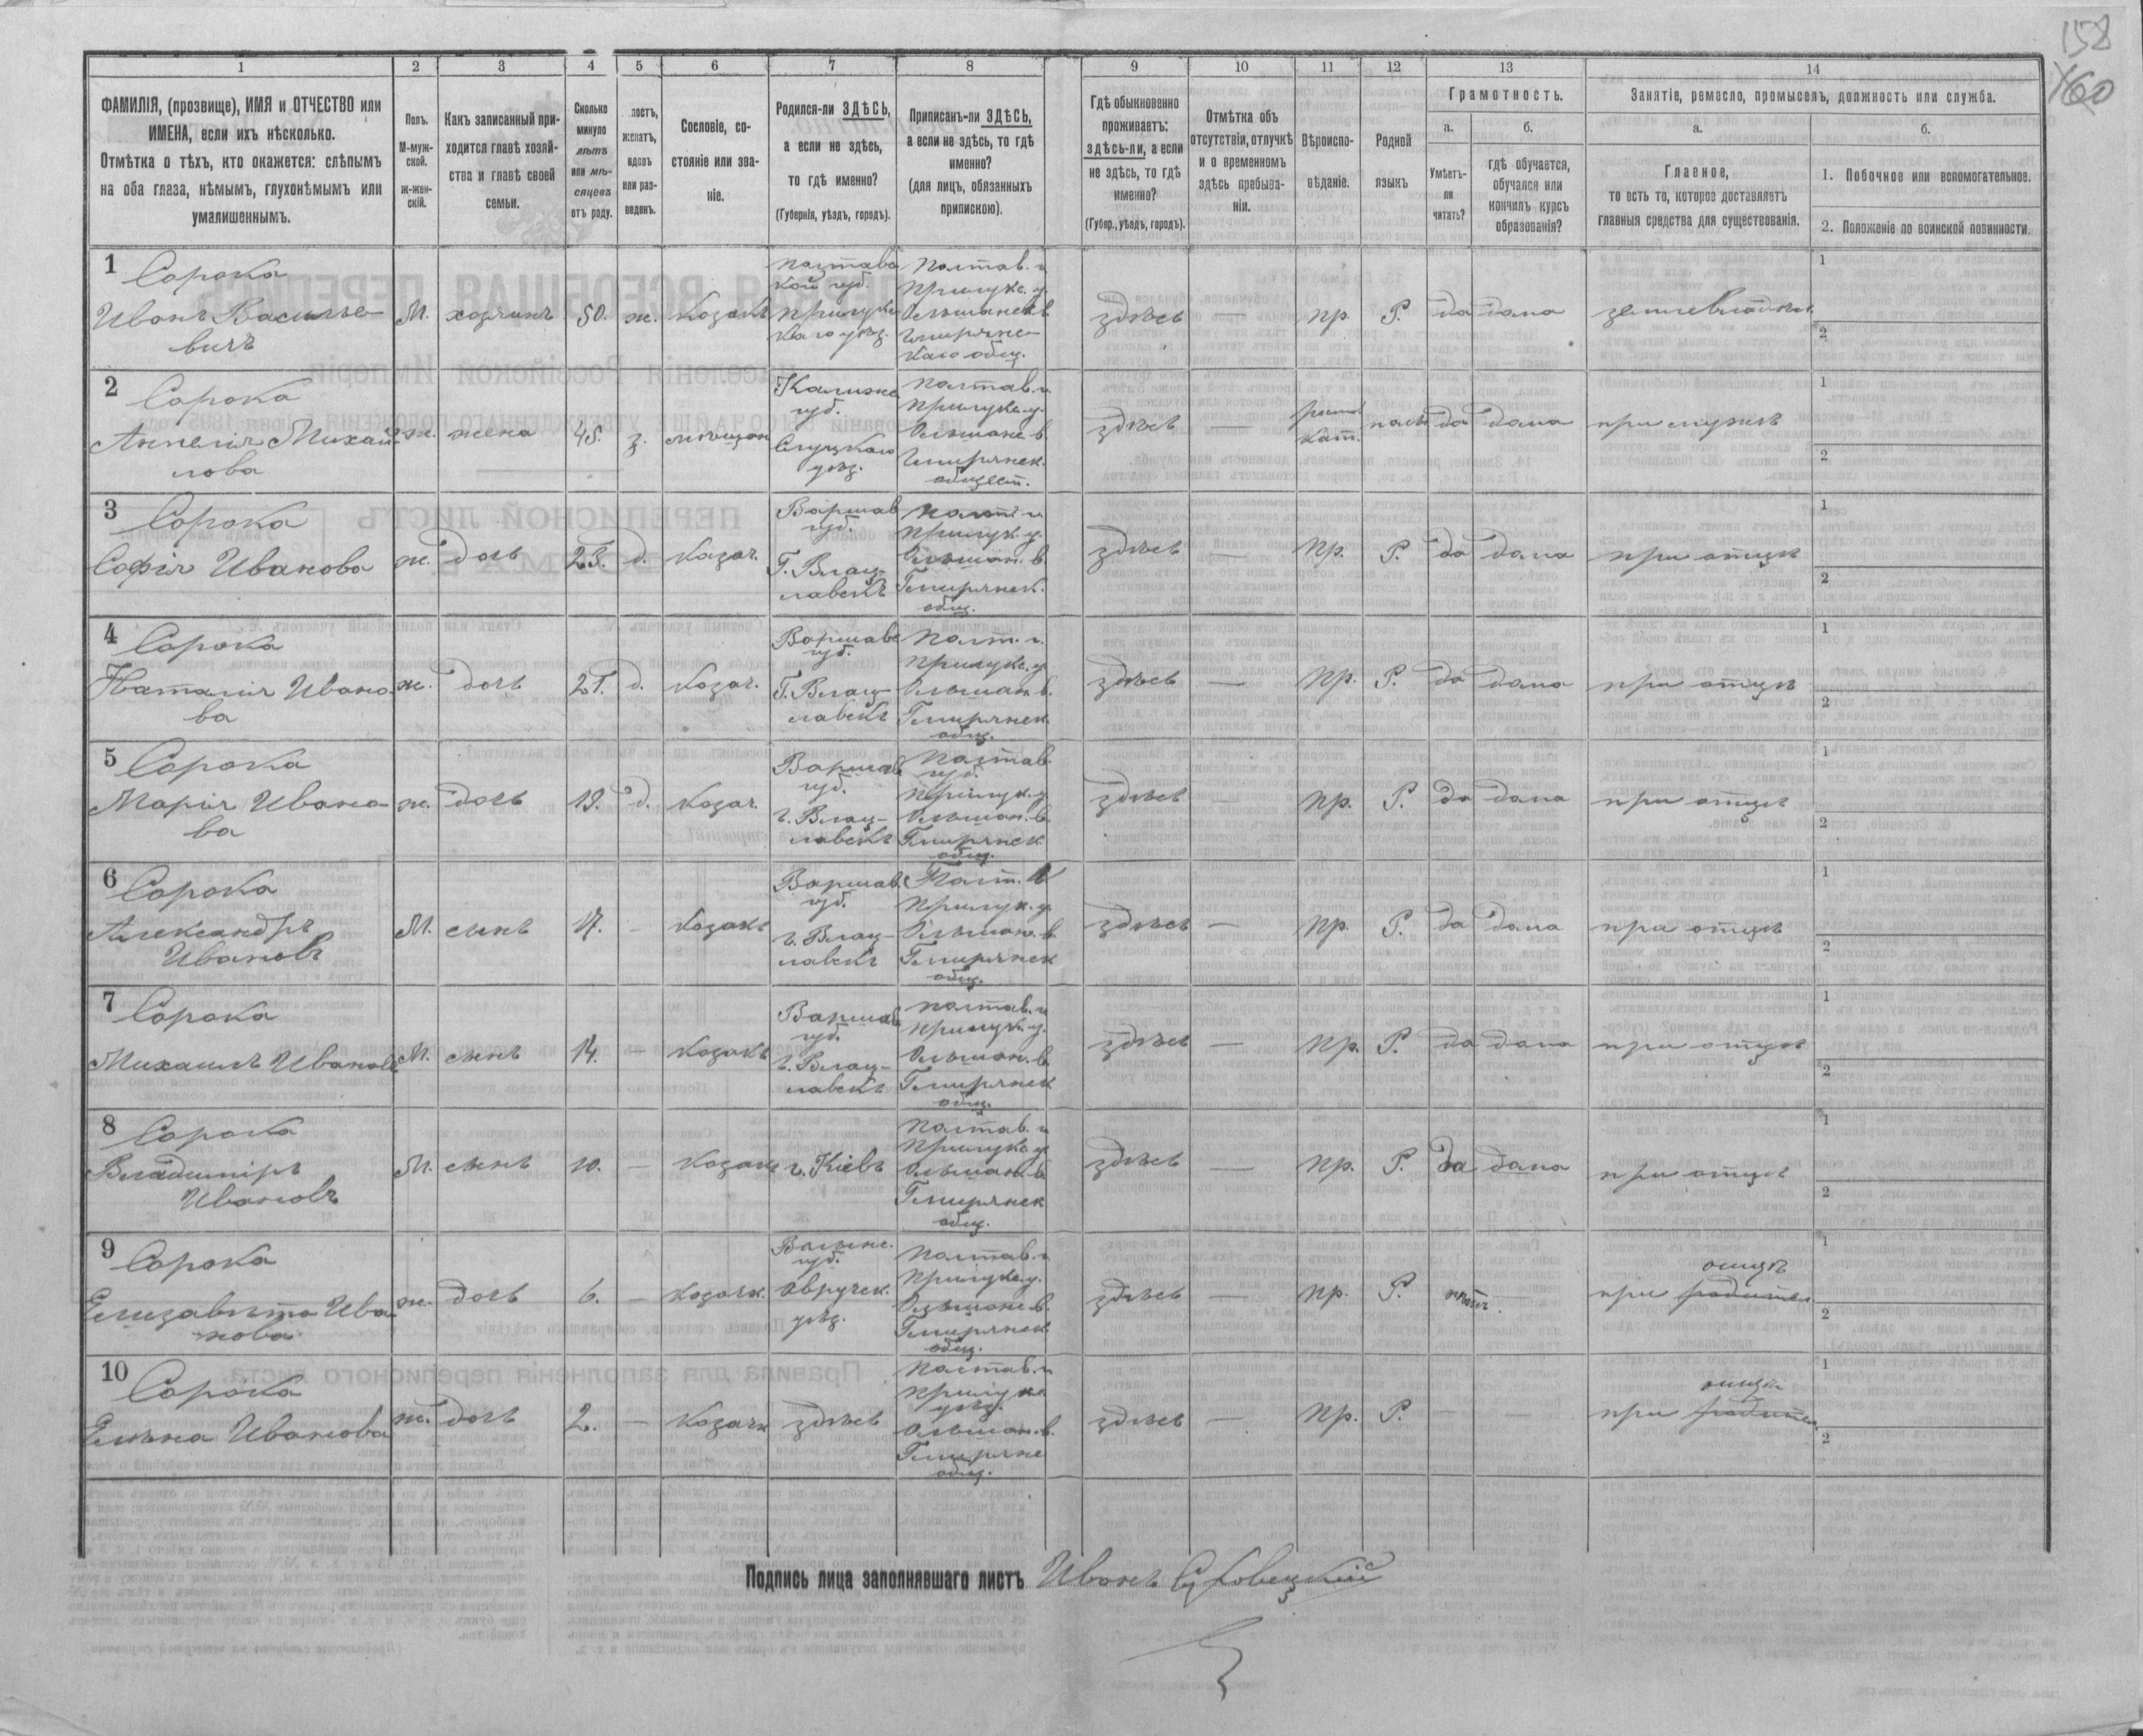 158
160
1 2 3 4 5 6 7 8 9 10 11 12 13 14
ФАМИЛІЯ, (прозвище), ИМЯ и ОТЧЕСТВО или
ИМЕНА, если ихъ нѣсколько.
Отмѣтка о тѣхъ, кто окажется: слѣпымъ
на оба глаза, нѣмымъ, глухонѣмымъ или
умалишеннымъ.
Полъ.
М-муж-
ской.
ж-жен-
скій.
Какъ записанный при-
ходится главѣ хозяй-
ства и главѣ своей
семьи.
Сколько
минуло
лѣтъ
или мѣ-
сяцевъ
отъ роду.
лостъ,
женатъ,
вдовъ
или раз-
веденъ.
Сословіе, со-
стояніе или зва-
ніе.
Родился-ли ЗДѢСЬ,
а если не здѣсь,
то гдѣ именно?
(Губернія, уѣздъ, городъ).
Приписанъ-ли ЗДѢСЬ,
а если не здѣсь, то гдѣ
именно?
(для лицъ, обязанныхъ
припискою).
Гдѣ обыкновенно
проживаетъ:
здѣсь-ли, а если
не здѣсь, то гдѣ
именно?
(Губер., уѣздъ, городъ).
Отмѣтка объ
отсутствіи, отлучкѣ
и о временномъ
здѣсь пребыва-
ніи.
Вѣроиспо-
вѣданіе.
Родной
языкъ
Грамотность.
а.
Умѣетъ-
ли
читать?
б.
гдѣ обучается,
обучался или
кончилъ курсъ
образованія?
Занятіе, ремесло, промыселъ, должность или служба.
а.
Главное,
то есть то, которое доставляетъ
главныя средства для существованія.
б.
1. Побочное или вспомогательное.
2. Положеніе по воинской повинности.
1 Сорока
Иванъ Василье-
вичъ
М. хозяинъ 50. ж. козакъ
Полтавс
кой губ.
Прилукс
каго уѣз.
Полтав. г.
Прилукс. у.
Ольшанск. в
Гмирянс-
каго общ.
здѣсь — пр. Р. да дома землевладѣл.
1
2
2 Сорока
Анжелія Михай-
лова
ж. жена 45. з. мѣщан
губ.
Слуцкаго
уѣз.
Полтав. г.
Прилукс. у.
Ольшанс. в.
Гмирянск.
общест.
здѣсь —
кат.
польс да дома при мужѣ
1
2
3 Сорока
Софія Иванова
ж. дочь 23. д. козач.
Варшав
губ.
Г. Влац-
лавскъ
Полт. г.
Прилук. у.
Ольшан. в.
Гмирянск.
общ.
здѣсь — пр. Р. да дома при отцѣ
1
2
4 Сорока
Наталія Ивано-
ва
ж. дочь 21. д. козач.
Варшавс
губ.
Г. Влац-
лавскъ
Полт. г.
Прилукс. у.
Ольшан. в.
Гмирянск.
общ.
здѣсь — пр. Р. да дома при отцѣ
1
2
5 Сорока
Марія Ивано-
ва
ж. дочь 19. д. козач.
Варшав
губ.
г. Влац-
лавскъ
Полтав.
губ.
Прилук. у
Ольшан. в.
Гмирянск
общ.
здѣсь — пр. Р. да дома при отцѣ
1
2
6 Сорока
Александръ
Ивановъ
М. сынъ 17. - козакъ
Варшав.
губ.
г. Влац-
лавскъ
Полт. г.
Прилук. у.
Ольшан. в.
Гмирянск
общ.
здѣсь — пр. Р. да дома при отцѣ
1
2
7 Сорока
Михаилъ Иванов
М. сынъ 14. — козакъ
Варшав
губ.
г. Влац-
лавскъ
Полтав. г
Прилукс. у.
Ольшан. в
Гмирянск
общ.
здѣсь — пр. Р. да дома при отцѣ
1
2
8 Сорока
Владиміръ
Ивановъ
М. сынъ 10. — козакъ г. Кіевъ
Полтав. г
Прилукс. у
Ольшан. в
Гмирянск
общ.
здѣсь — пр. Р. да дома при отцѣ
1
2
9 Сорока
Елизавѣта Ива
нова
ж. дочь 6. — козачк.
Волынс.
губ.
Овручск.
уѣз.
Полтав. г
Прилукс. у.
Ольшанс. в.
Гмирянск.
общ.
здѣсь — пр. Р. нѣтъ. —
отцѣ
при
1
2
10 Сорока
Елена Иванова
ж. дочь 2. — козачк здѣсь
Полтав. г
Прилукс
уѣз.
Ольшан. в.
Гмирянс
общ.
здѣсь — пр. Р. — —
отцѣ
при
1
2
Подпись лица заполнявшаго листъ Иванъ